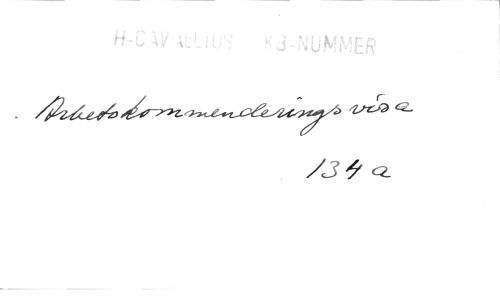 H-CAVALLIUS KB-NUMMER
Arbetskommenderingsvisa
134 a